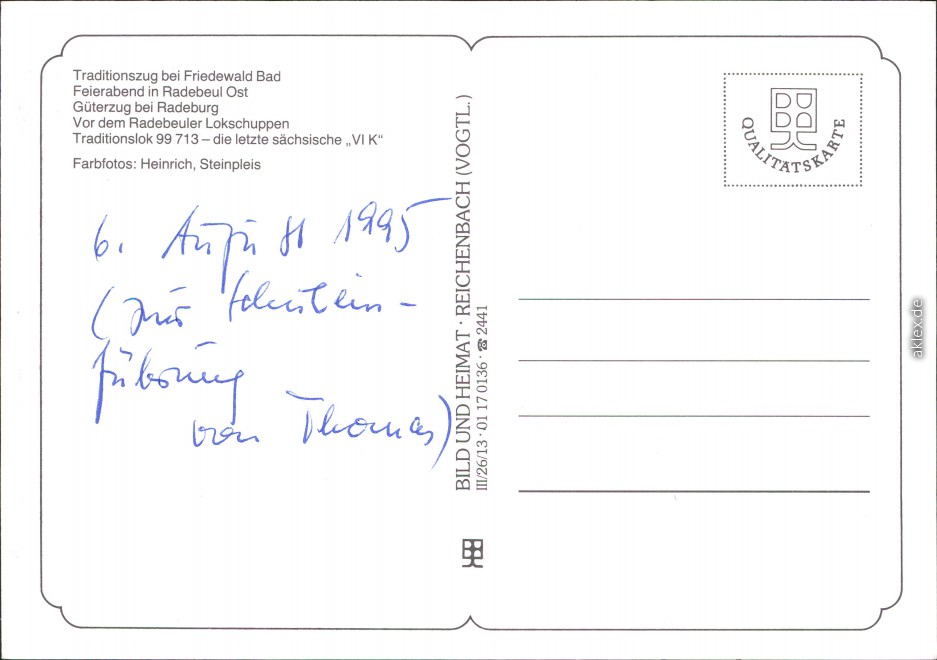 Traditionszug bei Friedewald Bad
Feierabend in Radebeul Ost
Güterzug bei Radeburg
Vor dem Radebeuler Lokschuppen
Traditionslok 99 713 – die letzte sächsische „VI K“
Farbfotos: Heinrich, Steinpleis
6. August 1995
(zur Schulein-
führung
von Thomas)
BILD UND HEIMAT · REICHENBACH (VOGTL.)
III/26/13 · 01 17 0136 · ☎ 2441
QUALITÄTSKARTE
aklex.de